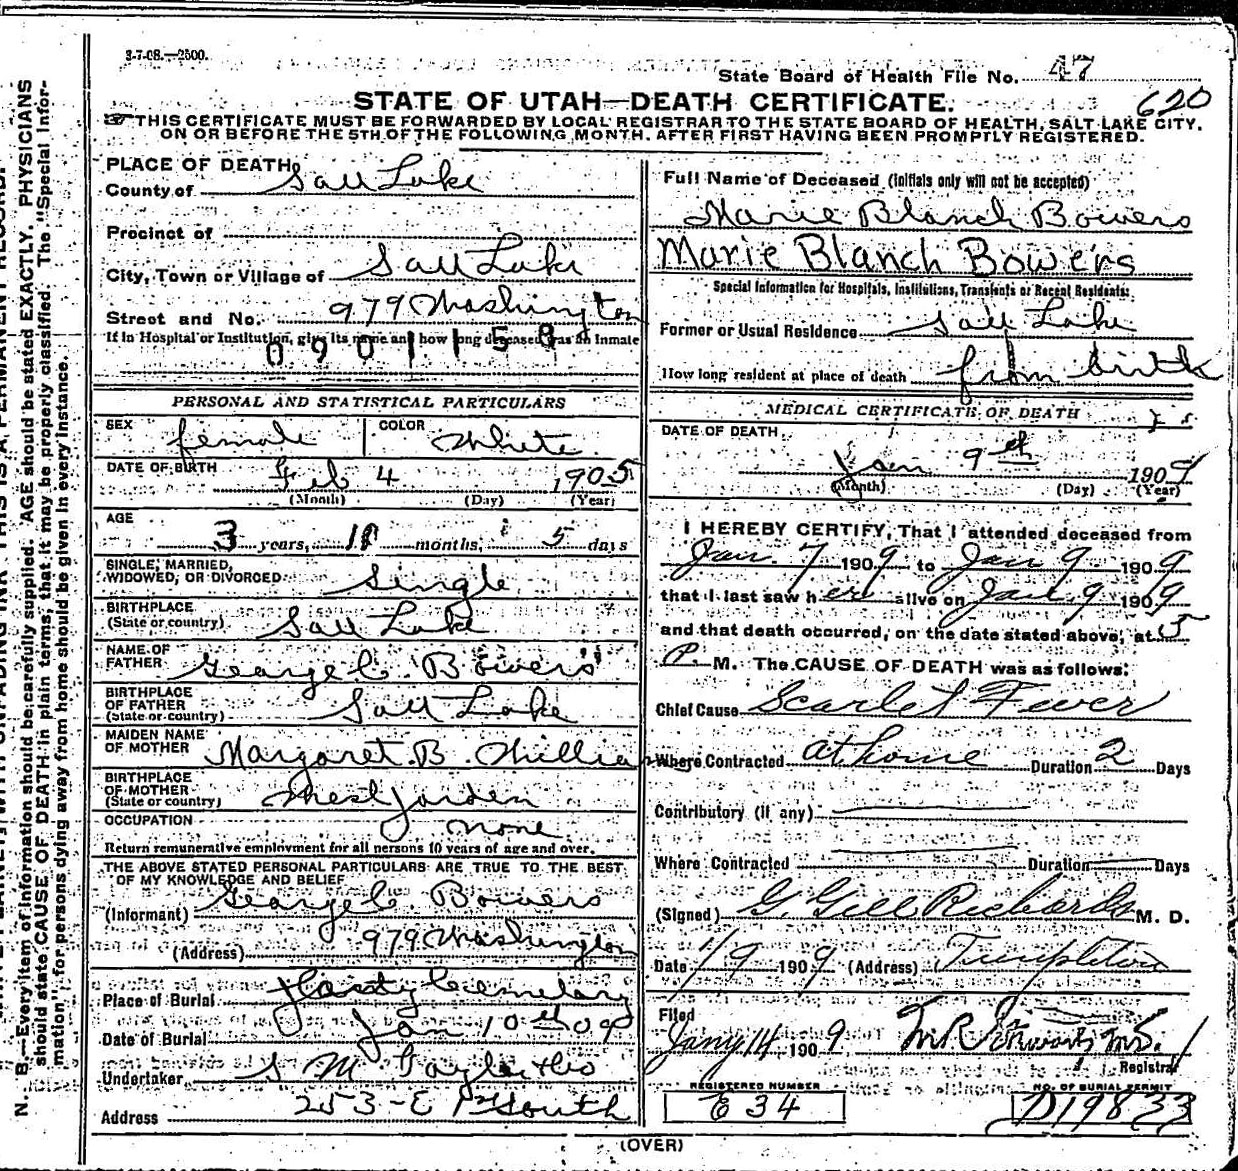 3-7-08.—2500.
State Board of Health File No. 47
620
STATE OF UTAH—DEATH CERTIFICATE.
THIS CERTIFICATE MUST BE FORWARDED BY LOCAL REGISTRAR TO THE STATE BOARD OF HEALTH, SALT LAKE CITY.
ON OR BEFORE THE 5TH OF THE FOLLOWING MONTH. AFTER FIRST HAVING BEEN PROMPTLY REGISTERED.
PLACE OF DEATH
County of Salt Lake
Precinct of
City, Town or Village of Salt Lake
Street and No. 979 Washington
If in Hospital or Institution, give its name and how long deceased was an Inmate
0901158
PERSONAL AND STATISTICAL PARTICULARS
SEX female COLOR White
DATE OF BIRTH Feb 4 1905
(Month) (Day) (Year)
AGE
3 years, 11 months, 5 days
SINGLE, MARRIED,
WIDOWED, OR DIVORCED single
BIRTHPLACE
(State or country) Salt Lake
NAME OF
FATHER George C. Bowers
BIRTHPLACE
OF FATHER
(State or country) Salt Lake
MAIDEN NAME
OF MOTHER Margaret. B.
BIRTHPLACE
OF MOTHER
(State or country) West Jorden
OCCUPATION none
Return remunerative employment for all persons 10 years of age and over.
THE ABOVE STATED PERSONAL PARTICULARS ARE TRUE TO THE BEST
OF MY KNOWLEDGE AND BELIEF
(Informant) George C. Bowers
(Address) 979 Washington
Place of Burial City Cemetary
Date of Burial Jan 10th 09
Undertaker S M
Address 253-E 1st South
Full Name of Deceased (Initials only will not be accepted)
Marie Blanch Bowers
Marie Blanch Bowers
Special Information for Hospitals, Institutions, Transients or Recent Residents:
Former or Usual Residence Salt Lake
How long resident at place of death from birth
MEDICAL CERTIFICATE OF DEATH
DATE OF DEATH
Jan 9th 1909
(Month) (Day) (Year)
I HEREBY CERTIFY, That I attended deceased from
Jan. 7 1909 to Jan 9 1909
that I last saw her alive on Jan 9 1909
and that death occurred, on the date stated above, at 5
P. M. The CAUSE OF DEATH was as follows:
Chief Cause Scarlet Fever
Where Contracted at home Duration 2 Days
Contributory (if any)
Where Contracted Duration Days
(Signed) G. Gill Richards M. D.
Date 1/9 1909 (Address) Templeton
Filed
Jany 14 1909
Registrar
REGISTERED NUMBER
E 34
NO. OF BURIAL PERMIT
D19833
(OVER)
N. B.—Every item of information should be carefully supplied. AGE should be stated EXACTLY. PHYSICIANS
should state CAUSE OF DEATH in plain terms, that it may be properly classified. The "Special Infor-
mation" for persons dying away from home should be given in every instance.